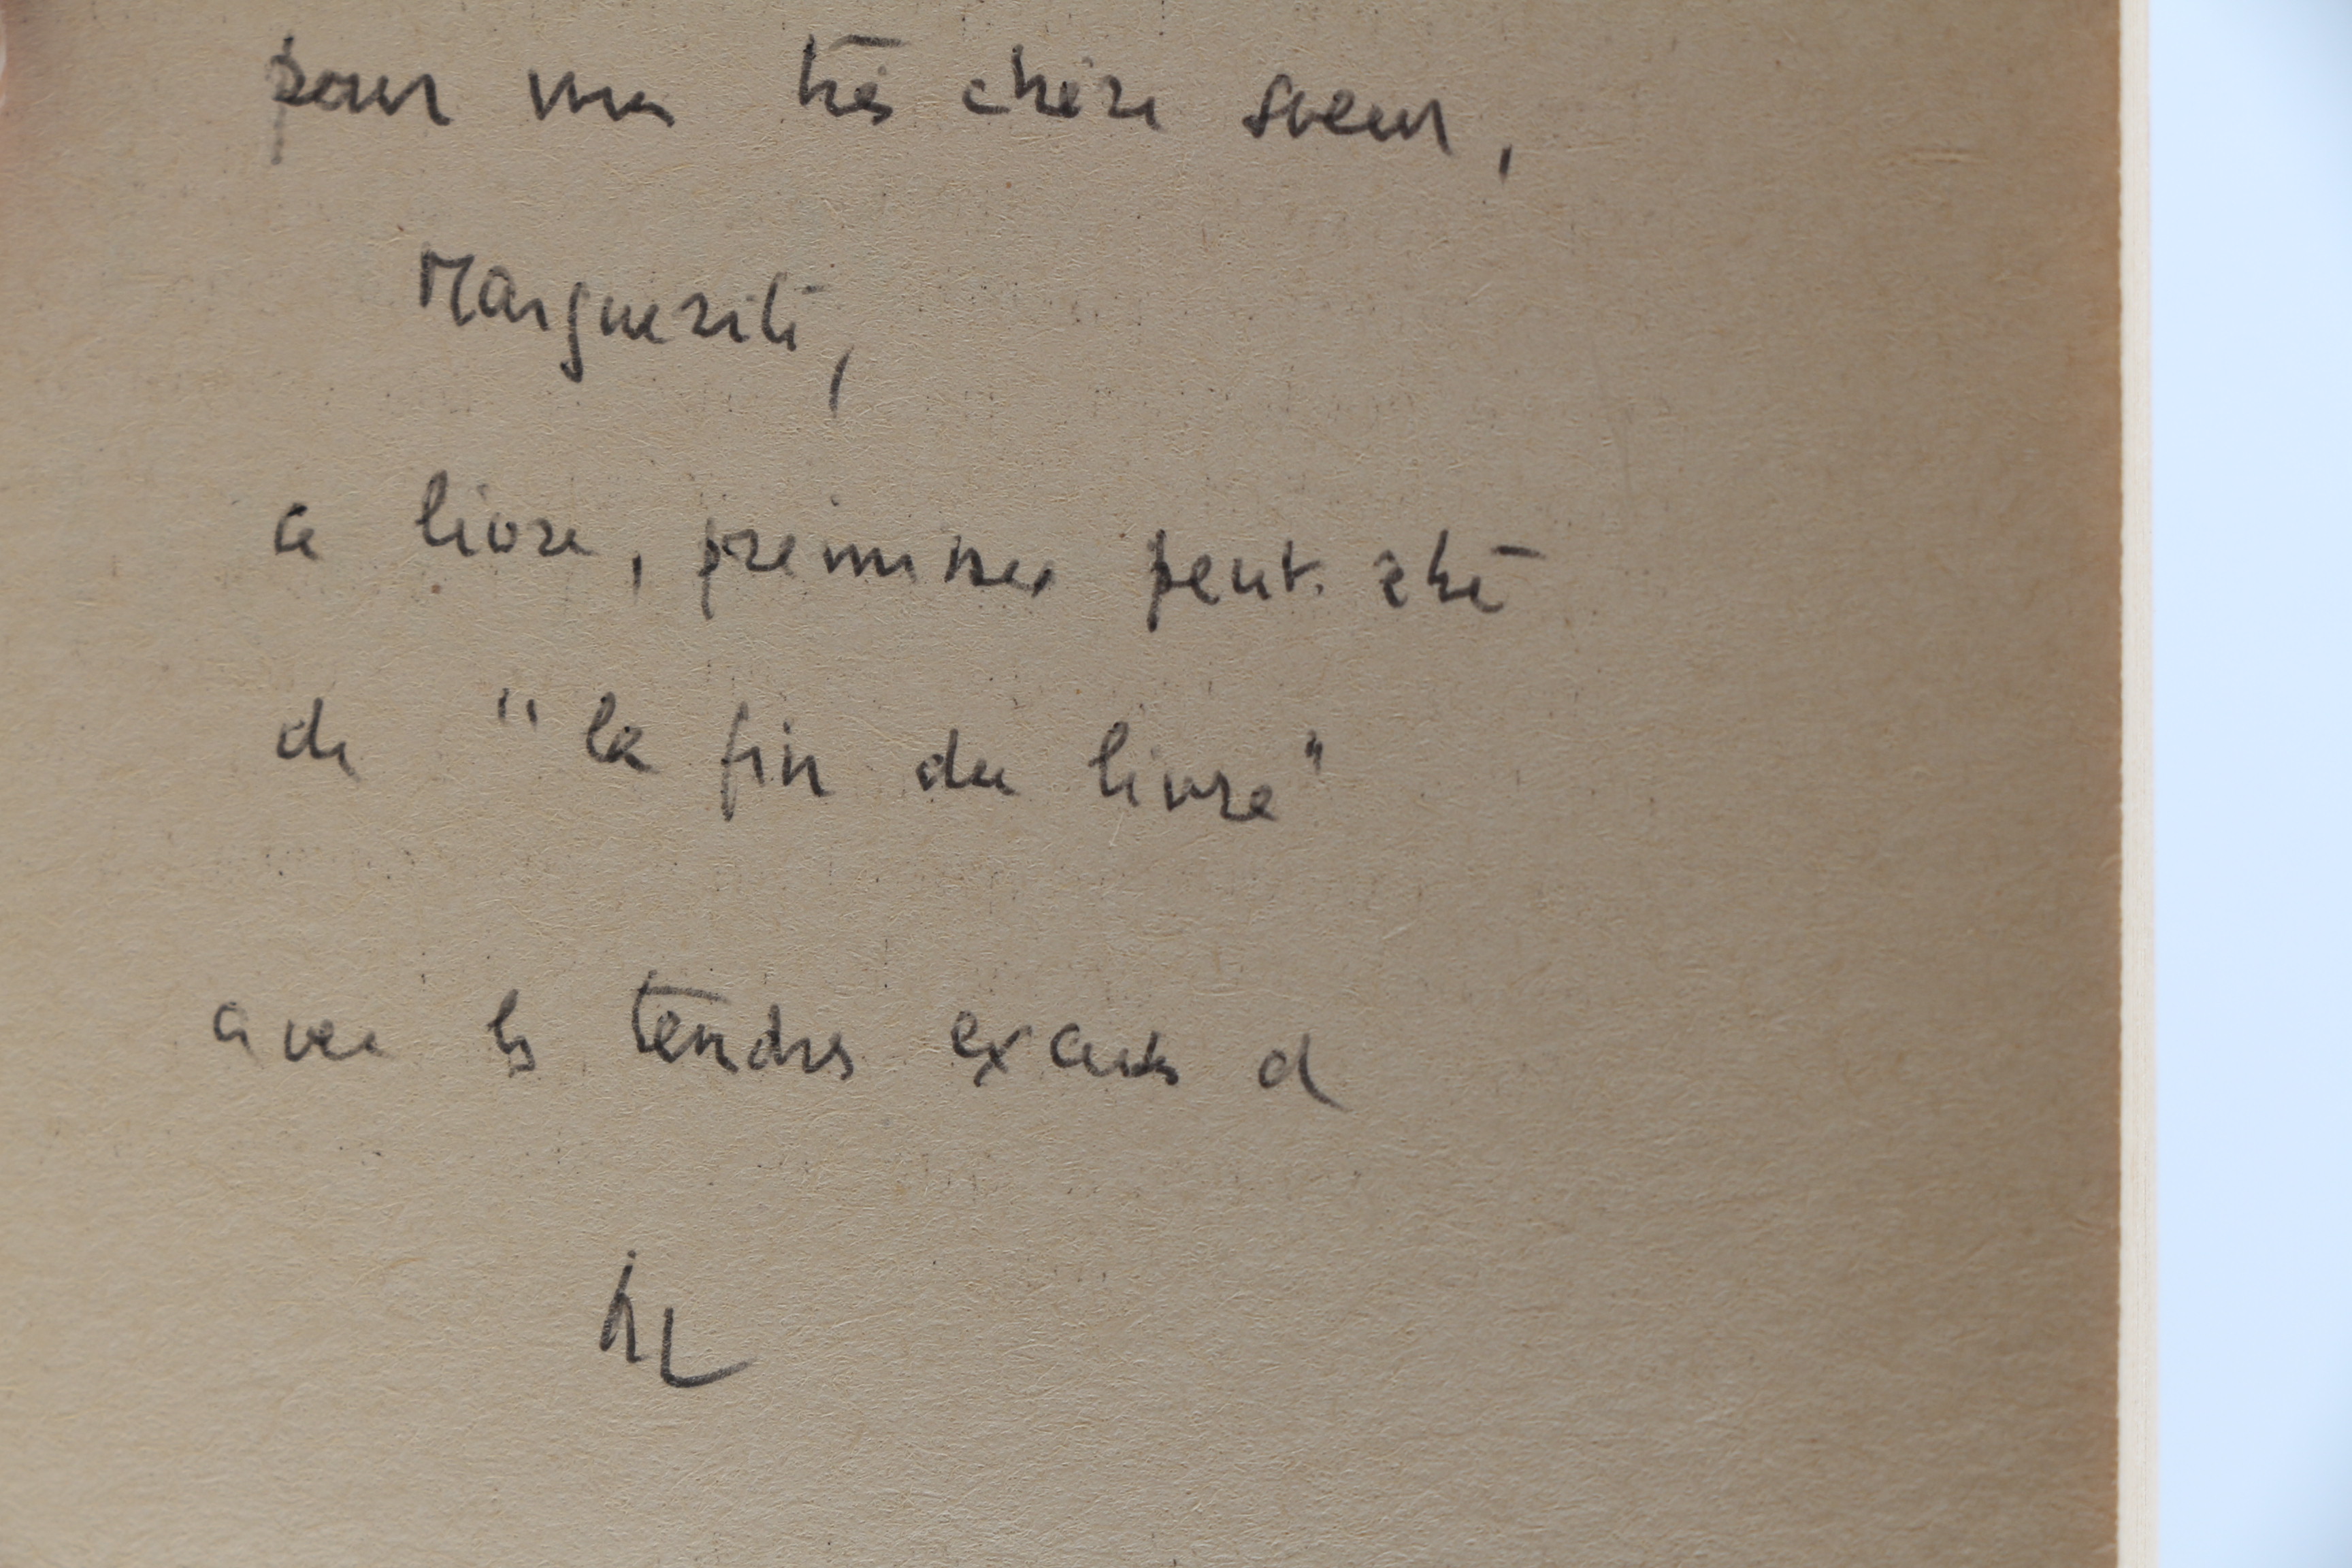 pour ma très chère sœur,
Marguerite,
ce livre, prémisses peut-être
de "la fin du livre"
avec les tendres excuses d
HL